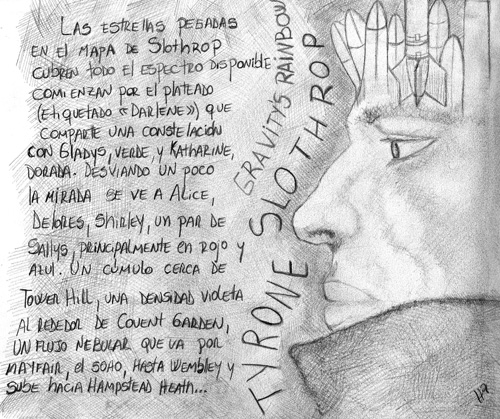 LAS ESTRELLAS PEGADAS
EN EL MAPA DE SLOTHROP
CUBREN TODO EL ESPECTRO DISPONIBLE
COMIENZAN POR EL PLATEADO
(ETIQUETADO «DARLENE») QUE
COMPARTE UNA CONSTELACIÓN
CON GLADYS, VERDE, Y KATHARINE,
DORADA. DESVIANDO UN POCO
LA MIRADA SE VE A ALICE,
DELORES, SHIRLEY, UN PAR DE
SALLYS, PRINCIPALMENTE EN ROJO Y
AZUL. UN CÚMULO CERCA DE
TOWER HILL, UNA DENSIDAD VIOLETA
ALREDEDOR DE COVENT GARDEN,
UN FLUJO NEBULAR QUE VA POR
MAYFAIR, EL SOHO, HASTA WEMBLEY Y
SUBE HACIA HAMPSTEAD HEATH...
GRAVITY'S RAINBOW
TYRONE SLOTHROP